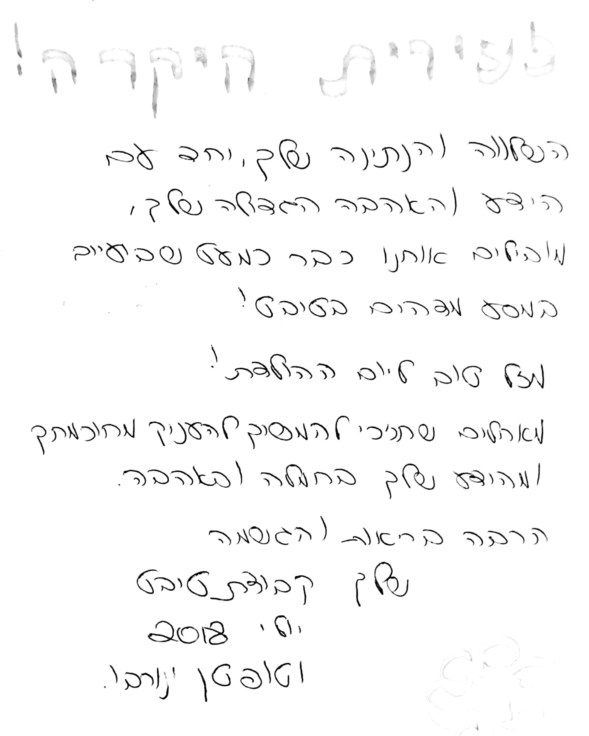 לעירית היקרה!
השלווה והנתינה שלך, יחד עם
הידע והאהבה הגדולה שלך,
מובילים אותנו כבר כמעט שבועיים
במסע מדהים בטיבט!
מזל טוב ליום ההולדת!
מאחלים שתזכי להמשיך להעניק מחוכמתך
ומהידע שלך בחמלה ובאהבה.
הרבה בריאות והגשמה
שלך קבוצת טיבט
יולי 2018
וטופטן